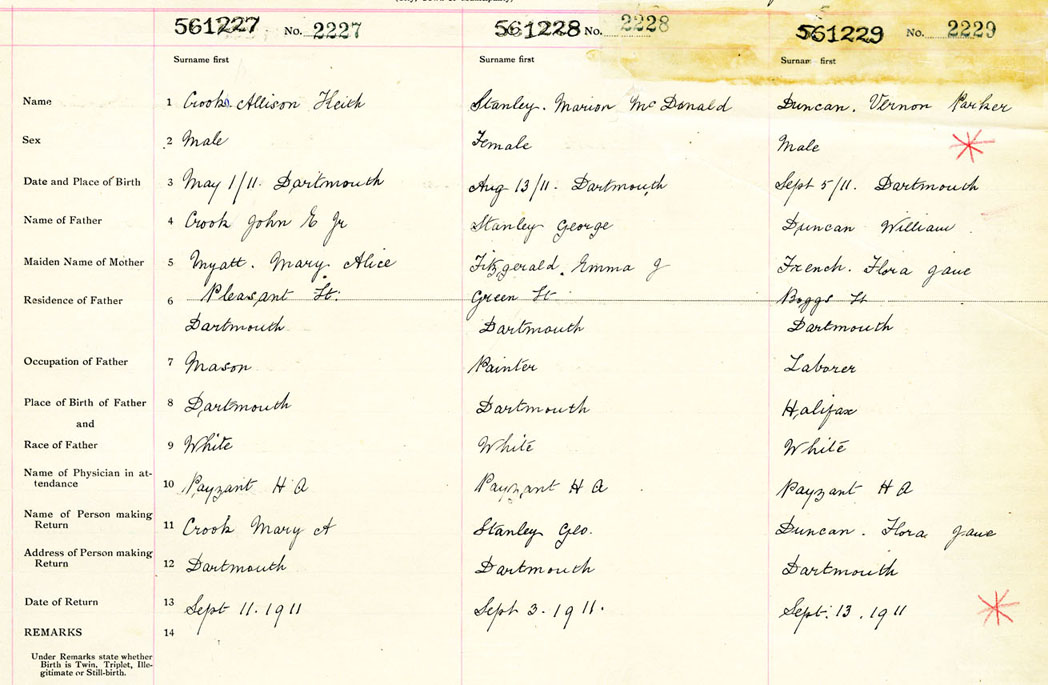 561227 No. 2227 561228 No. 2228 561229 No. 2229
Surname first Surname first Surname first
Name 1 Crook. Allison Keith Stanley. Marion McDonald Duncan. Vernon Parker
Sex 2 Male Female Male
Date and Place of Birth 3 May 1/11. Dartmouth Aug 13/11. Dartmouth Sept 5/11. Dartmouth
Name of Father 4 Crook John E Jr Stanley George Duncan William
Maiden Name of Mother 5 Myatt. Mary Alice Fitzgerald. Emma J French. Flora Jane
Residence of Father 6 Pleasant St. Green St Boggs St
Dartmouth Dartmouth Dartmouth
Occupation of Father 7 Mason Painter Laborer
Place of Birth of Father 8 Dartmouth Dartmouth Halifax
and
Race of Father 9 White White White
Name of Physician in at-
tendance 10 Payzant H A Payzant H A Payzant H A
Name of Person making
Return 11 Crook Mary A Stanley Geo. Duncan. Flora Jane
Address of Person making
Return 12 Dartmouth Dartmouth Dartmouth
Date of Return 13 Sept 11. 1911 Sept 3. 1911. Sept. 13. 1911
REMARKS 14
Under Remarks state whether
Birth is Twin, Triplet, Ille-
gitimate or Still-birth.